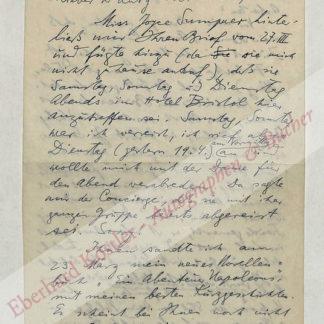 Miss Joyce Sumpner hinter-
ließ mir Ihren Brief vom 27.III
und fügte hinzu (da sie mich
nicht zuhause antraf), daß sie
Samstag, Sonntag u Dienstag
Abends im Hotel Bristol hier
anzutreffen sei. Samstag, Sonntag
war ich verreist, ich rief also
Dienstag (gestern 19.4.) am Vormittag an,
wollte mich mit der Dame für
den Abend verabreden. Da sagte
mir der Concierge, daß sie mit ihrer
ganzen Gruppe bereits abgereist
sei. Sorry.
Ihnen sandte ich am
23. März mein neues Novellen-
buch: "Ein Abenteuer Napoleons",
mit meinen besten Kurzgeschichten.
Es scheint bei Ihnen noch nicht
Eberhard Köstler - Autographen & Bücher